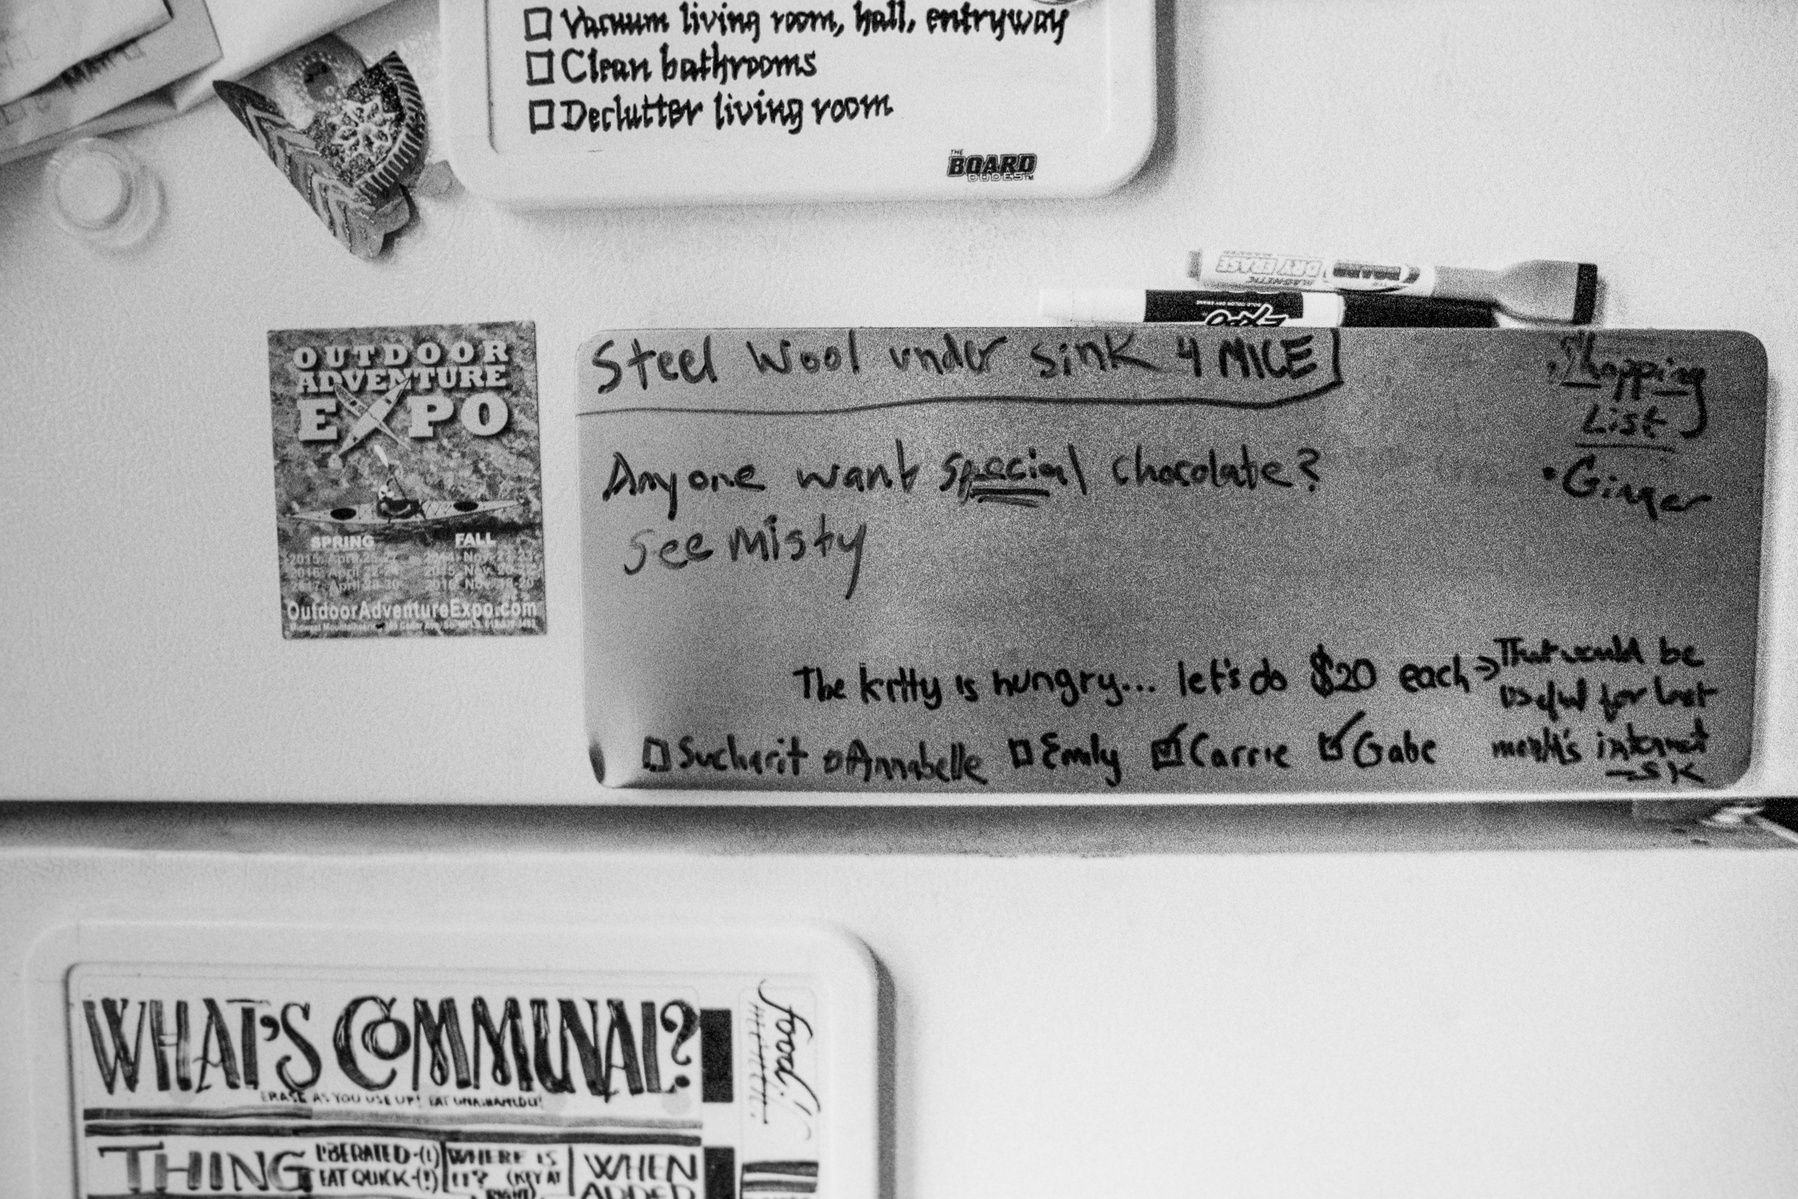 Vacuum living room, hall, entryway
Clean bathrooms
Declutter living room
THE
BOARD
DUDES
MAGNETIC
DRY ERASE
EXPO
OUTDOOR
ADVENTURE
EXPO
SPRING FALL
OutdoorAdventureExpo.com
Steel Wool under sink 4 MICE
Anyone want special chocolate?
See Misty
Shopping
List
• Ginger
The kitty is hungry... let's do $20 each →
That would be
useful for last
month's internet
-SK
Sucharit Annabelle Emily Carrie Gabe
WHAT'S COMMUNAL?
ERASE AS YOU USE UP!
food!
THING
LIBERATED-(L)
EAT QUICK-(!)
WHERE IS
IT? (KEY AT
RIGHT)
WHEN
ADDED